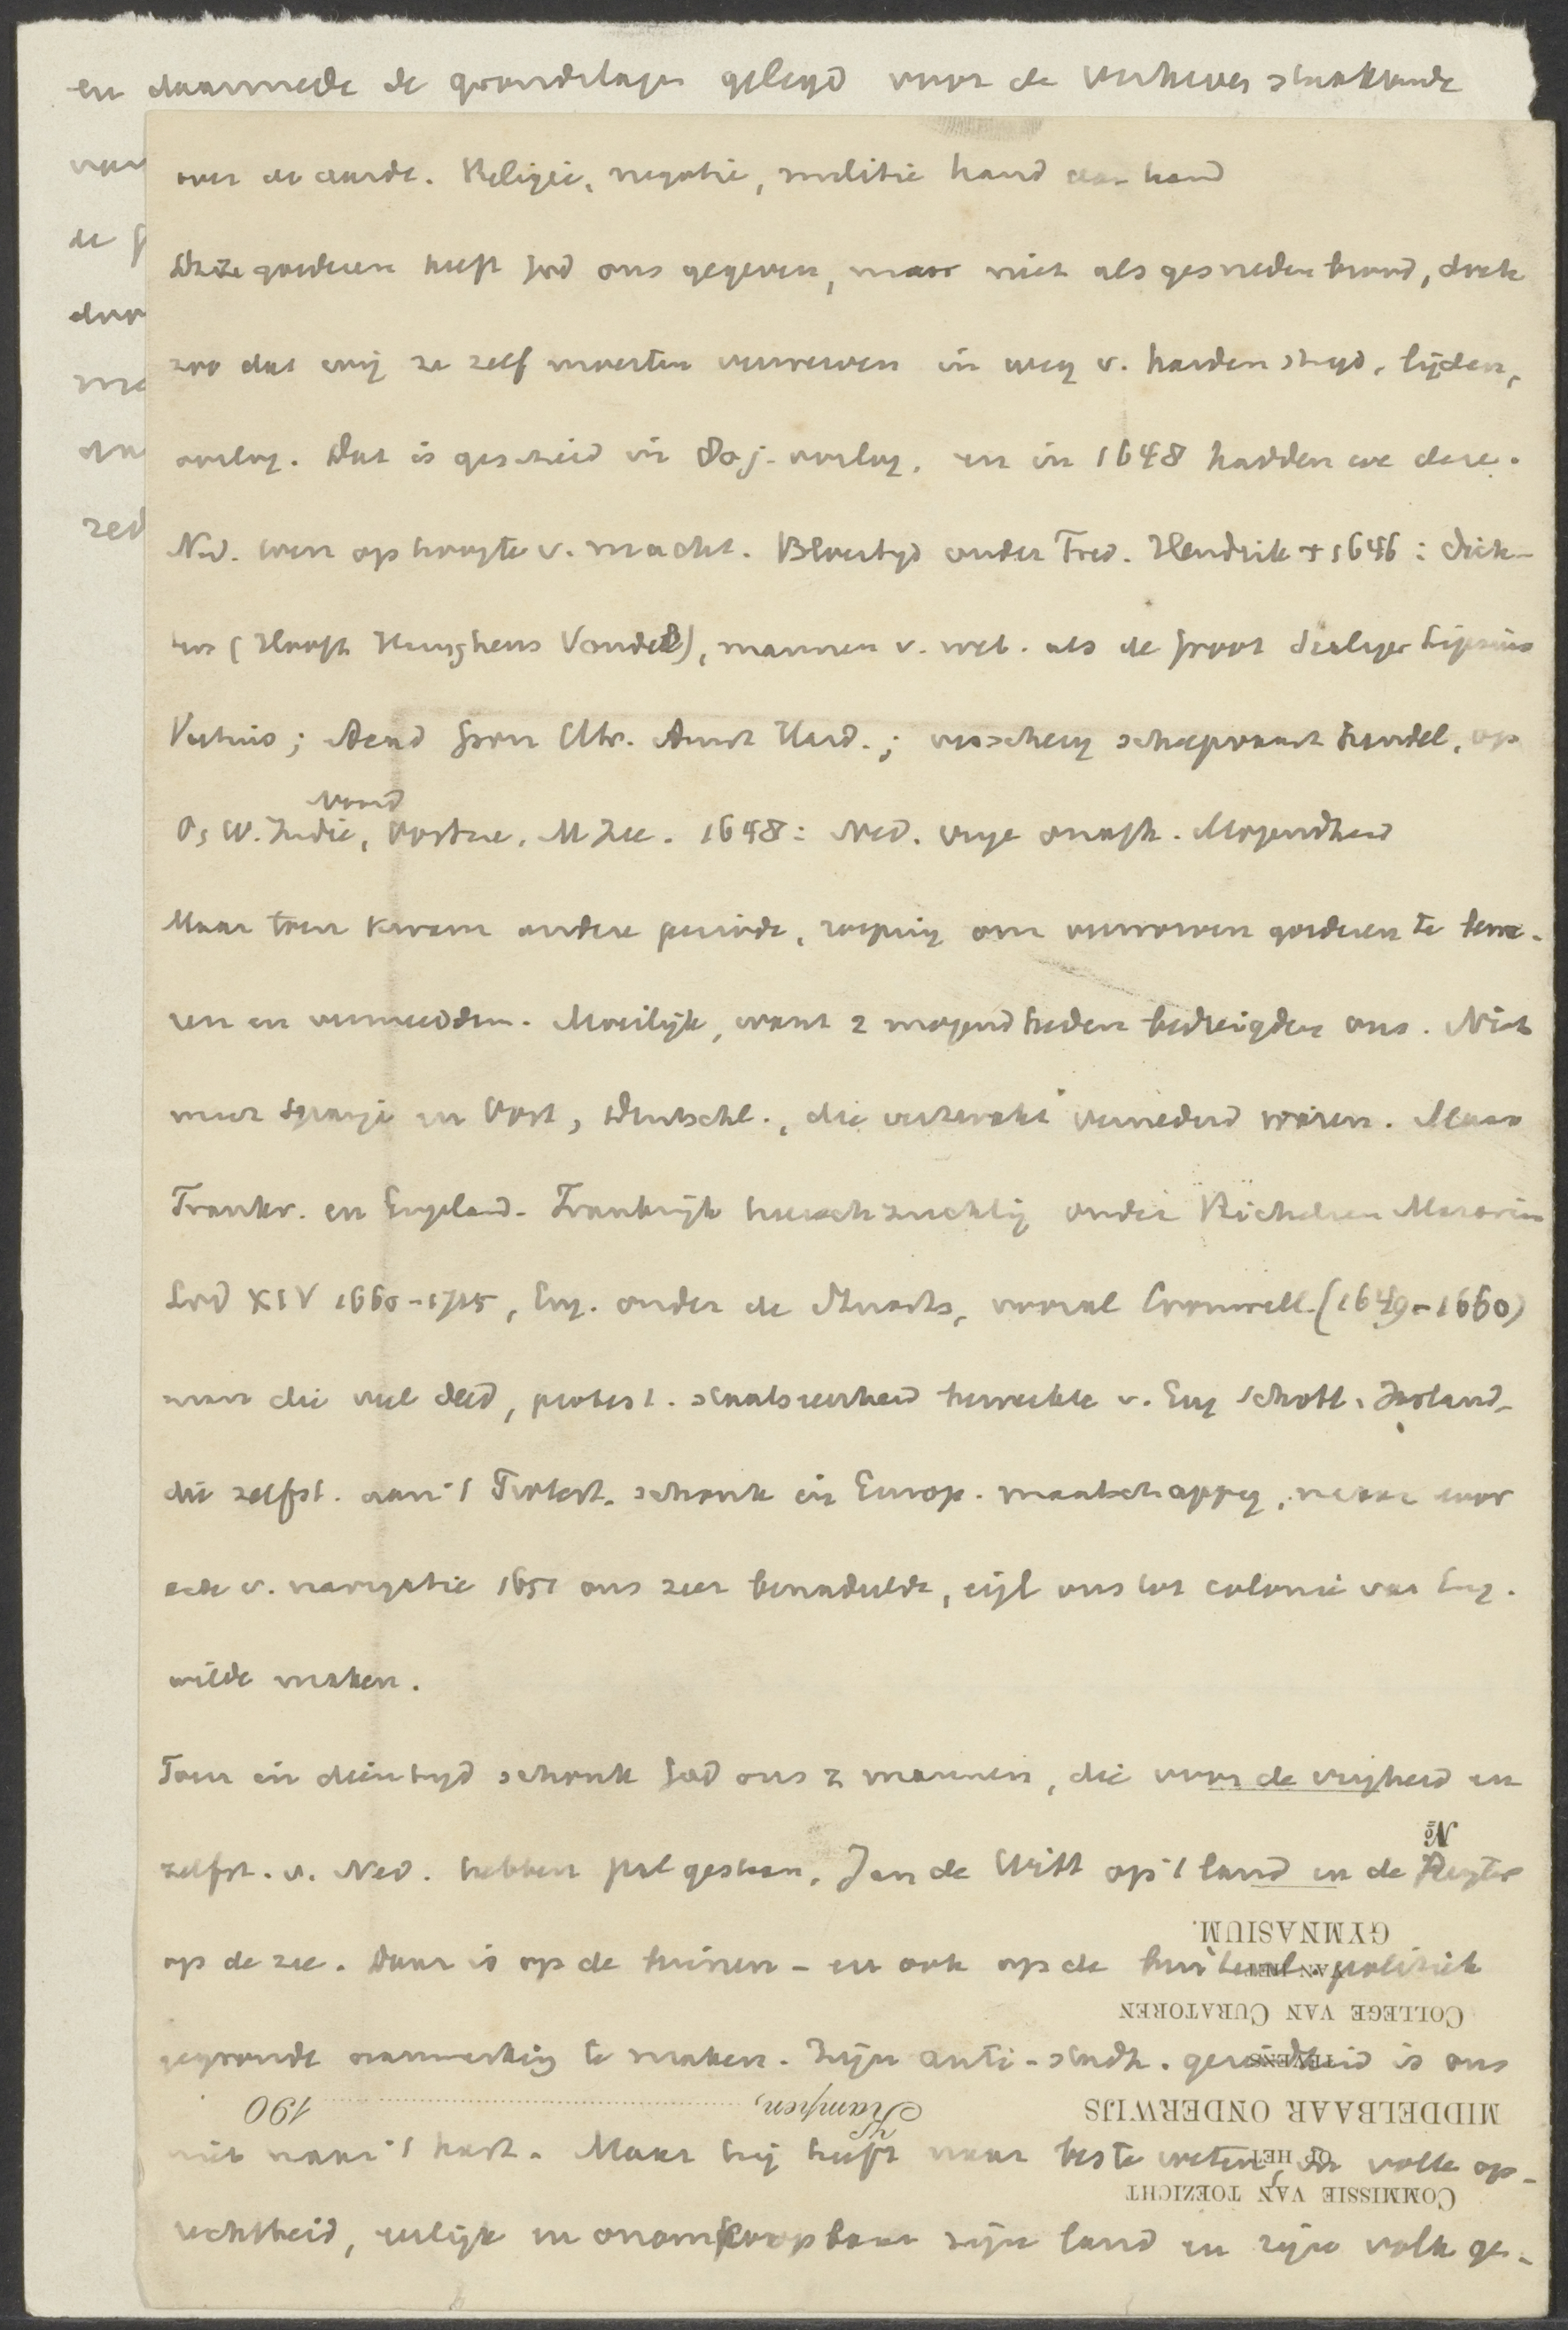 en daarmede de grondslagen gelegd voor de
van
de
door
me
zed
over de aarde. Religie, negotie, militie hand aan hand
Deze goederen heeft God ons gegeven, maar niet als gesneden brood, doch
zoo dat wij ze zelf moesten verwerven in weg v. harden strijd, lijden,
oorlog. Dat is geschied in 80 j. oorlog. en in 1648 hadden we deze.
Ned. toen op hoogte v. macht. Bloeityd onder Fred. Hendrik + 1646: dich-
ters (Hooft Huyghens Vondel), mannen v. wet. als de Groot Scaliger Lipsius
Voetius; Acad Gron Utr. Amst Hard.; visscherij scheepvaart handel, op
Noord
O, W. Indie, Oostzee, M Zee. 1648: Ned. vrije onafh. Mogendheid
Maar toen kwam andere periode, roeping om verworven goederen te bewa-
ren en vermeerdren. Moeilijk, want 2 mogendheden bedreigden ons. Niet
meer Spanje en Oost, Duitschl., die verzwakt vernederd waren. Maar
Frankr. en Engeland. Frankrijk heerschzuchtig onder Richelieu Mazarin
Lod XIV 1660-1715, Eng. onder de Stuarts, vooral Cromwell (1649-1660)
man die veel deed, protest. staatseenheid bewerkte v. Eng Schotl. Ierland
die zelfst. aan 't Protest. schonk in Europ. maatschappij, maar door
acte v. navigatie 1651 ons zeer benadeelde, ons tot colonie van Eng.
wilde maken.
Toen in dien tijd schonk God ons 2 mannen, die voor de vrijheid en
zelfst. v. Ned. hebben pal gestaan, Jan de Witt op 't land en de Ruyter
No
op de zee. Daar is op de binnen- en ook op de buitenl. politiek
GYMNASIUM.
VAN HET
COLLEGE VAN CURATOREN
gegronde aanmerking te maken. Zijn anti-stadh. gezindheid is ons
TEVENS
MIDDELBAAR ONDERWIJS
Kampen, 190
niet naar 't hart. Maar hij heeft naar beste weten, in volle op-
OP HET
COMMISSIE VAN TOEZICHT
rechtheid, eerlijk en onomkoopbaar zijn land en zijn volk ge-